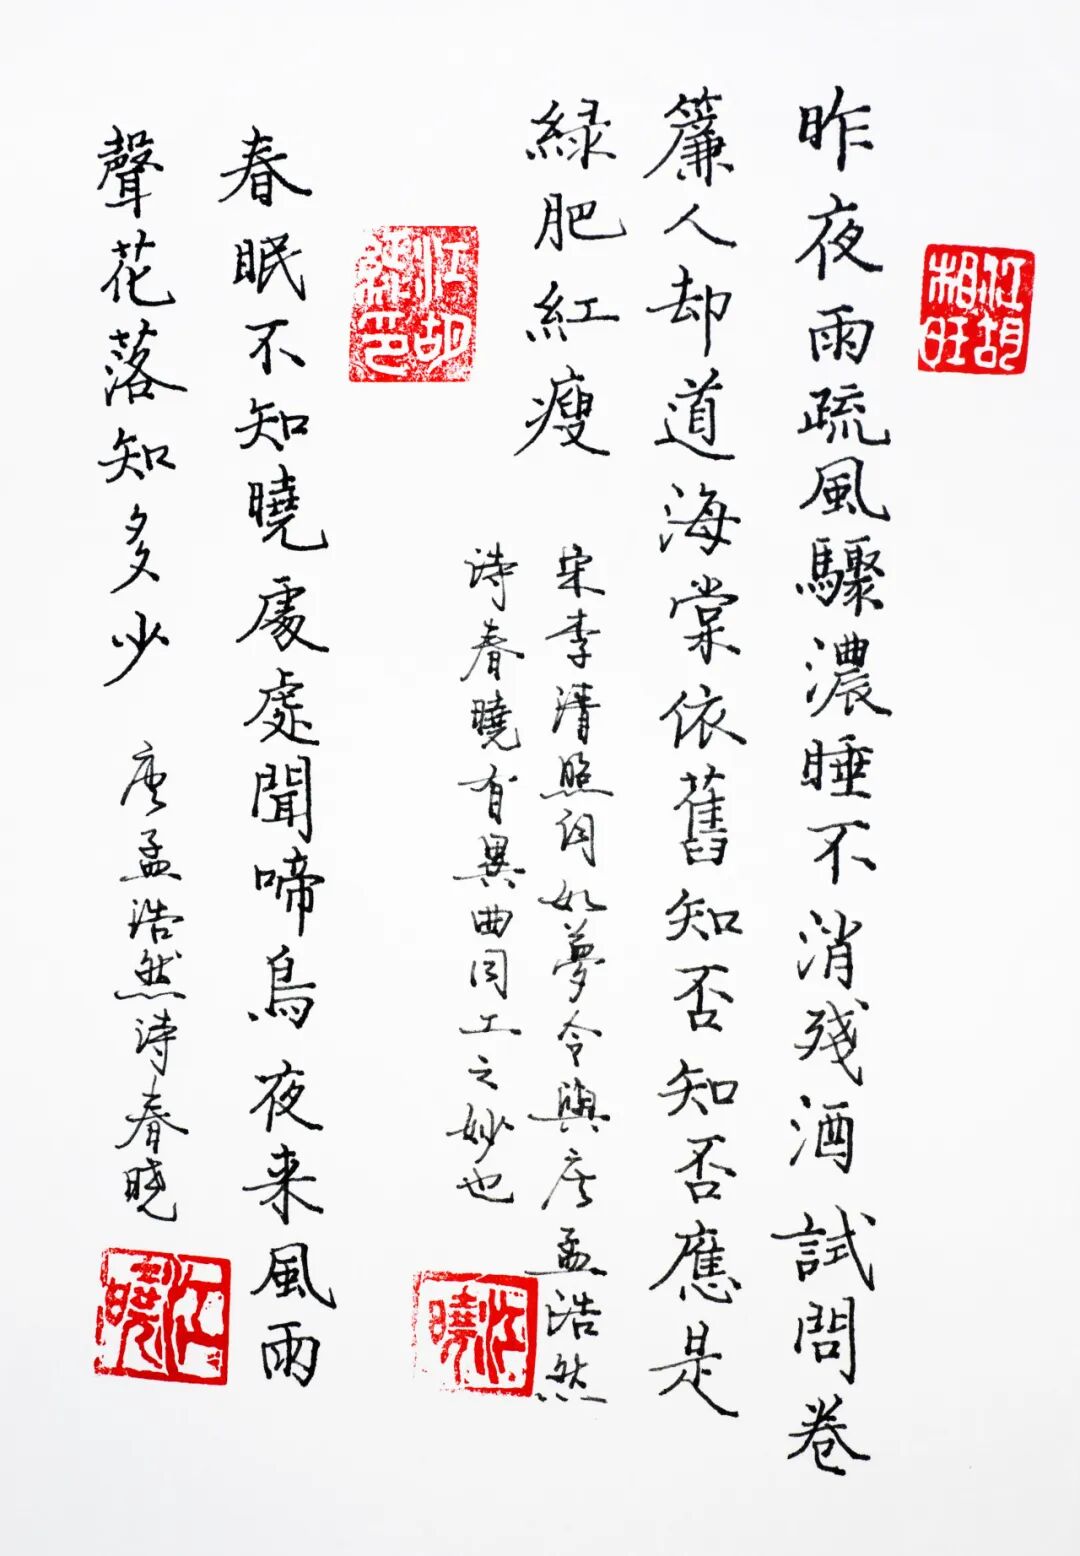 江胡相旺
昨夜雨疏風驟濃睡不消殘酒試問卷
簾人却道海棠依舊知否知否應是
緑肥紅瘦
宋李清照词如夢令與唐孟浩然
诗春曉有異曲同工之妙也
江曉
春眠不知曉處處聞啼鳥夜来風雨
聲花落知多少
唐孟浩然诗春晓
江曉